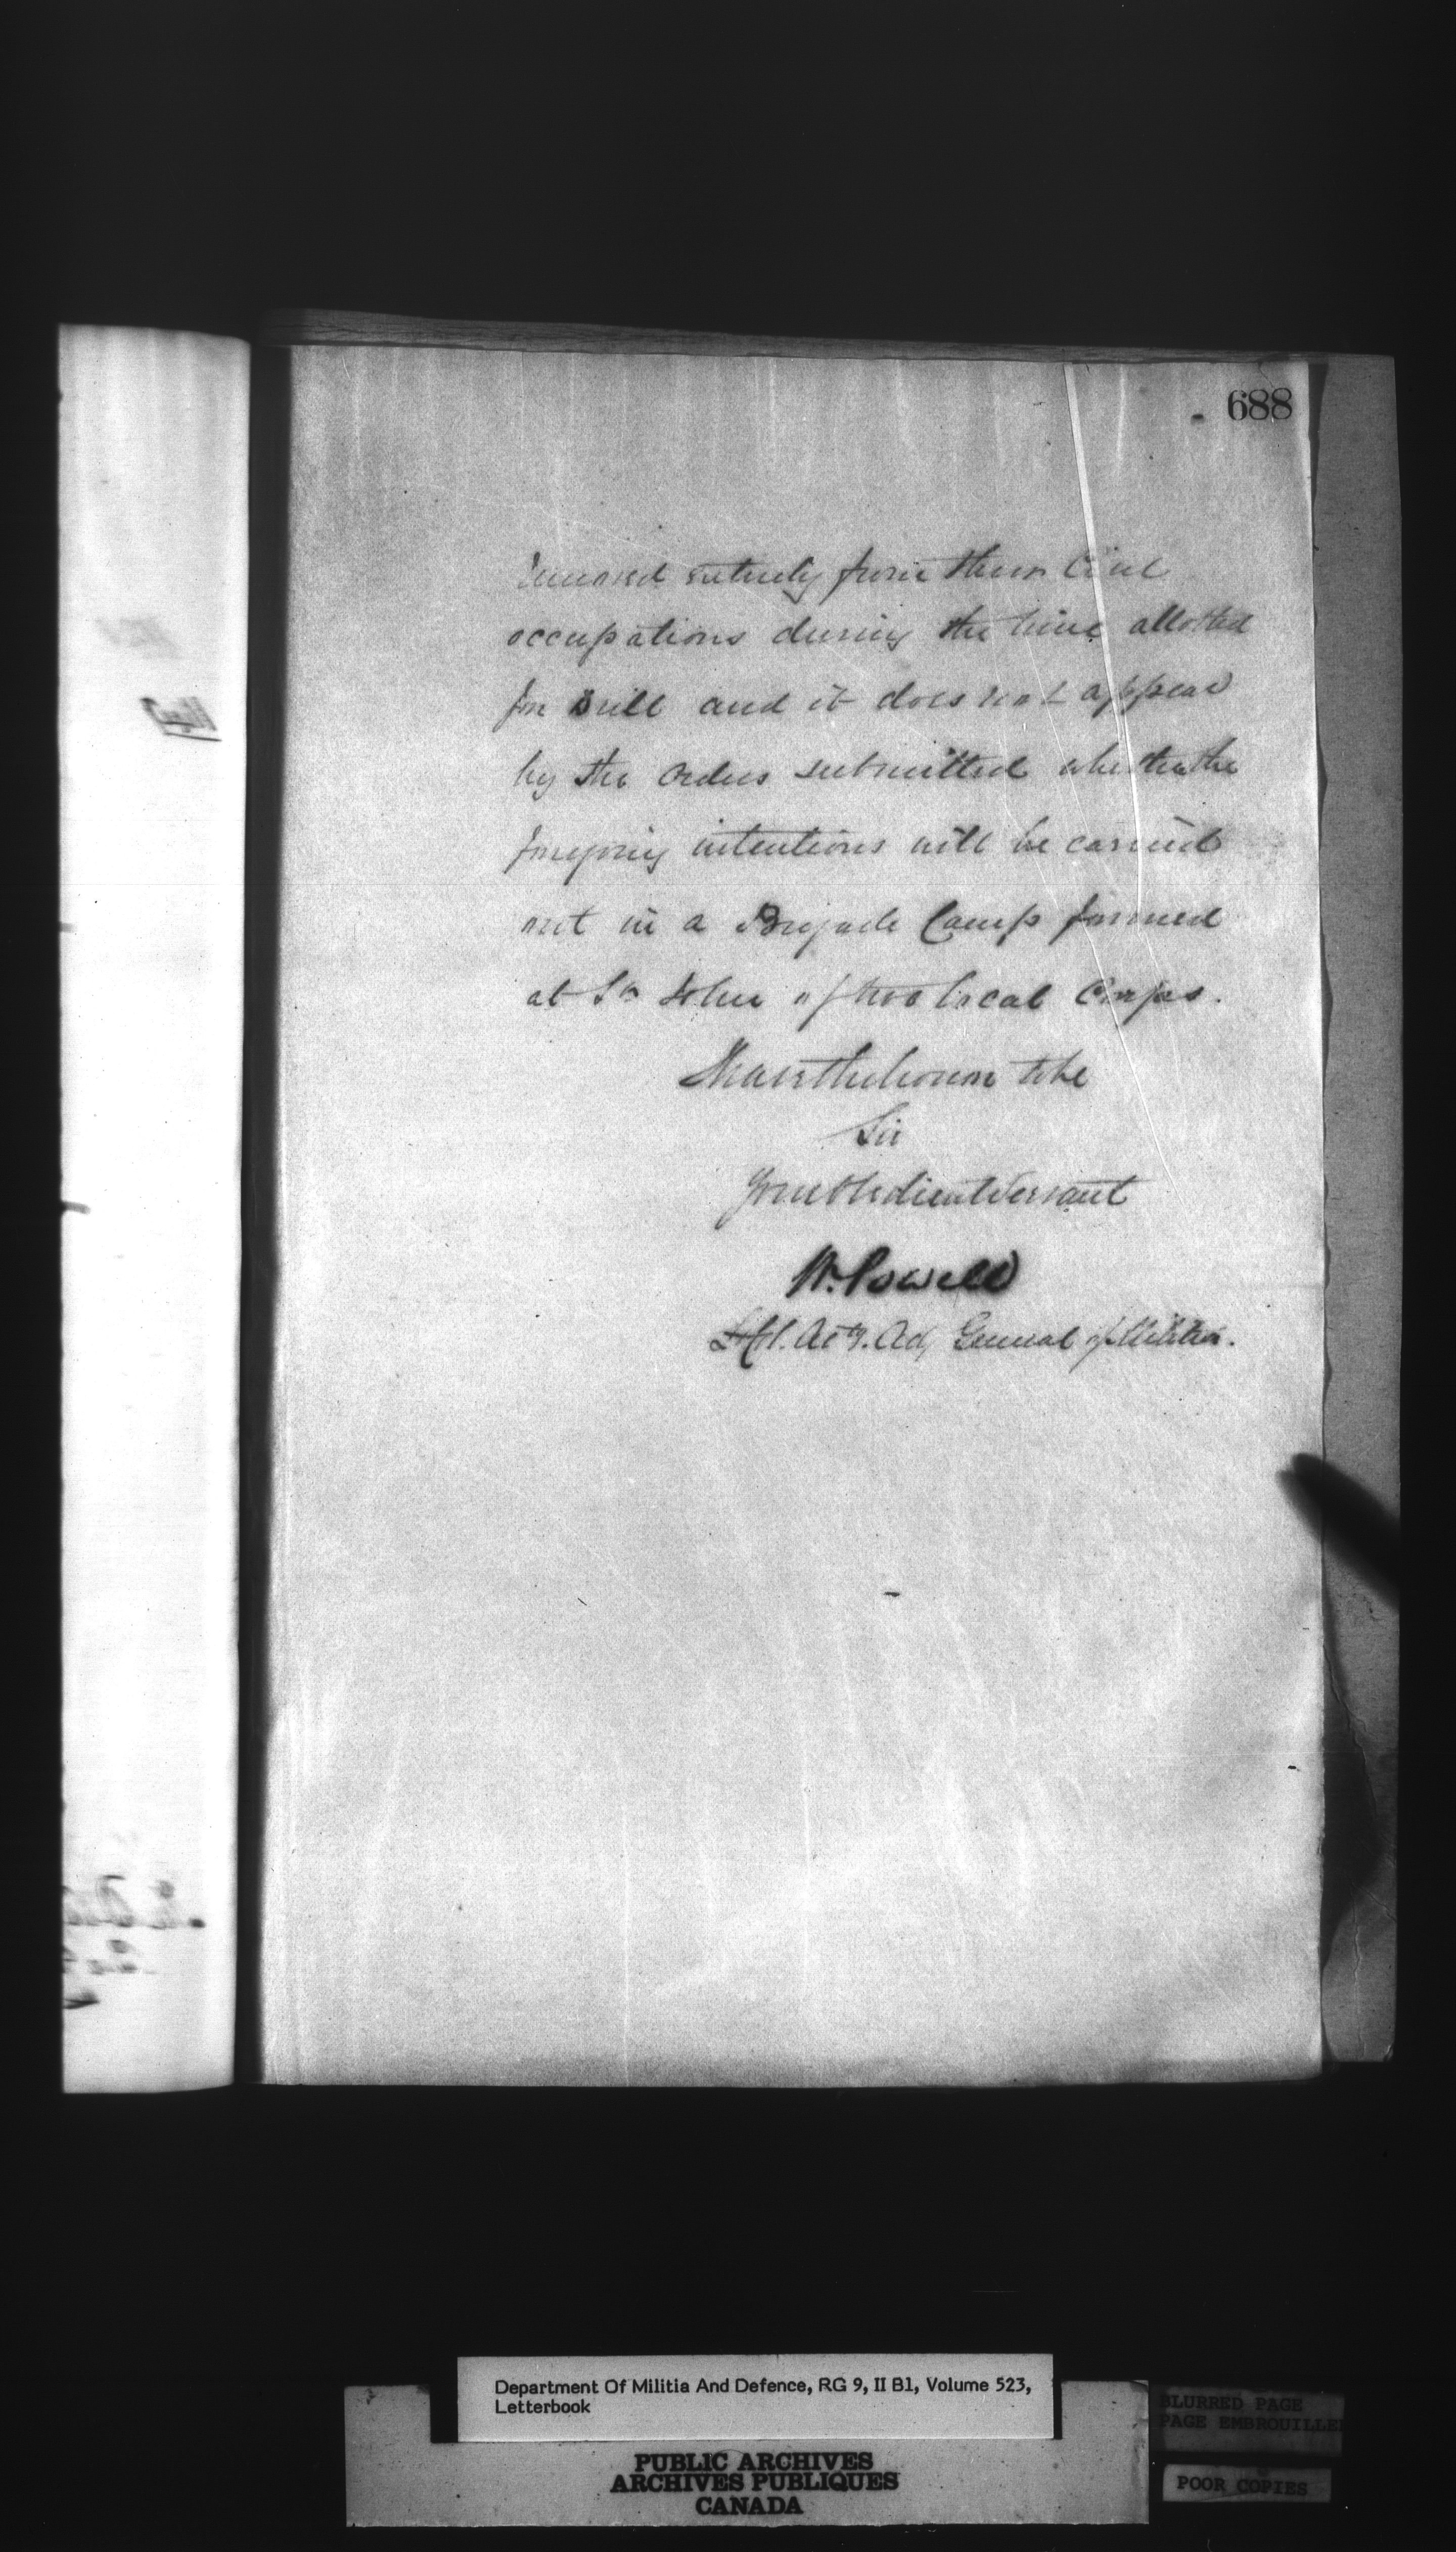 688
removed entirely from their Civil
occupations during the time allotted
for Drill and it does not appear
by the orders submitted whether the
foregoing intentions will be carried
out in a Brigade Camp formed
at St John of two local Corps.
I have the honor to be
Sir
Your Obedient Servant
W. Powell
Lt Col. Actg. Adj General of Militia.
Department Of Militia And Defence, RG 9, II B1, Volume 523,
Letterbook
PUBLIC ARCHIVES
ARCHIVES PUBLIQUES
CANADA
BLURRED PAGE
PAGE EMBROUILLEE
POOR COPIES